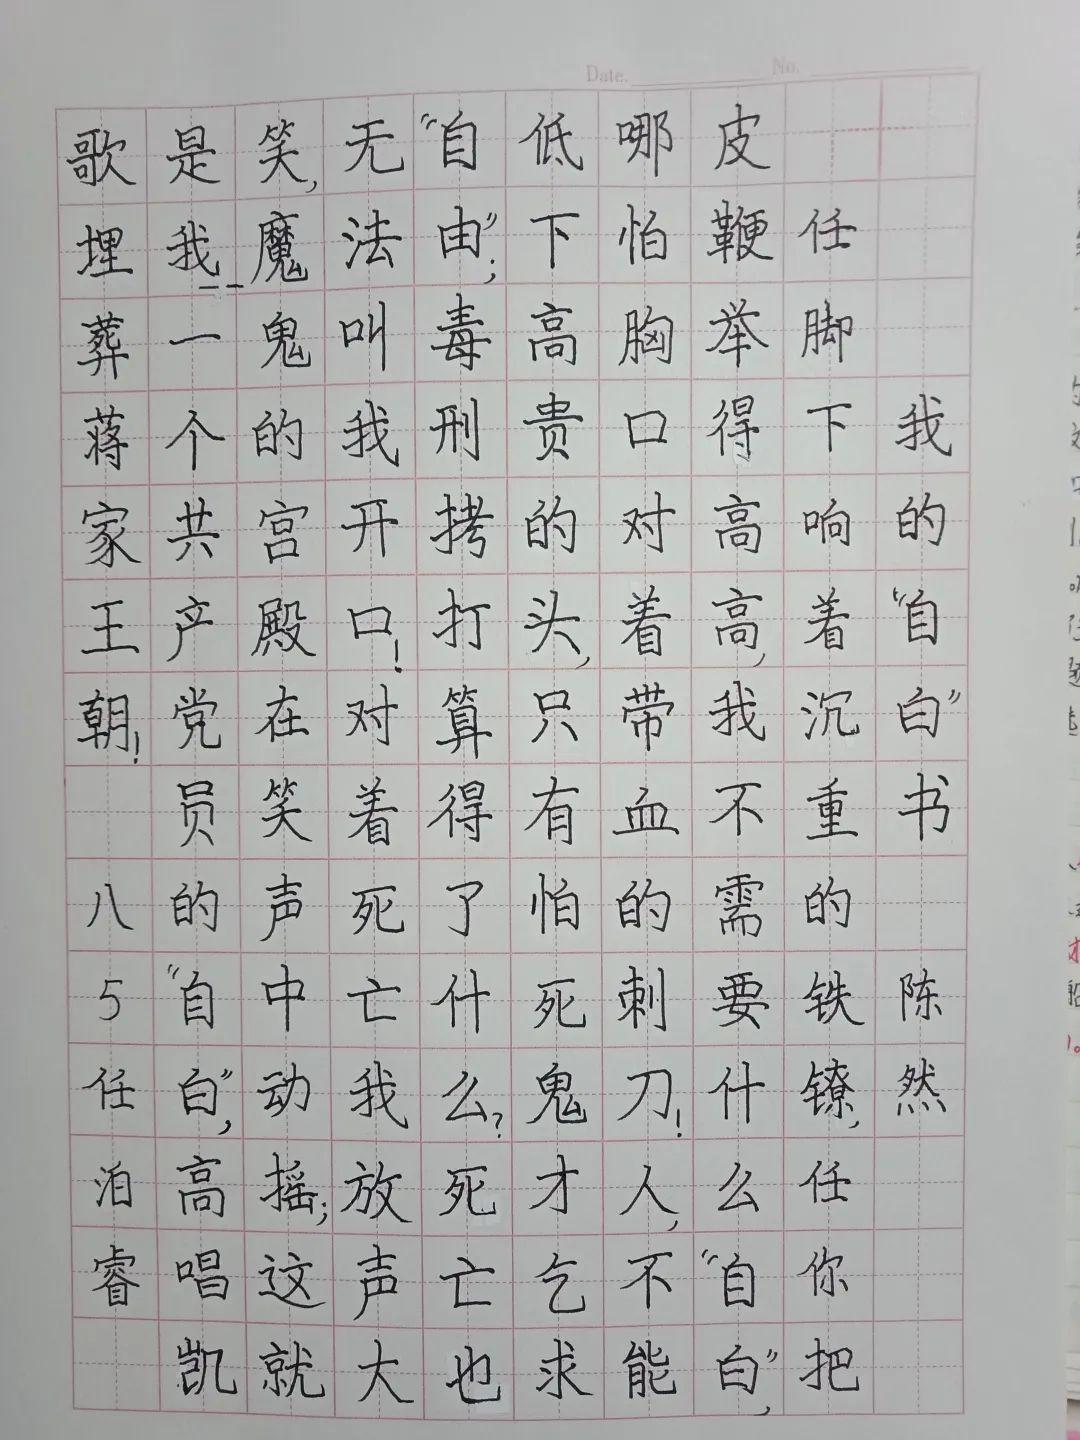 Date. No.
我的“自白”书 陈然
任脚下响着沉重的铁镣,任你把
皮鞭举得高高,我不需要什么“自白”,
哪怕胸口对着带血的刺刀!人,不能
低下高贵的头,只有怕死鬼才乞求
“自由”;毒刑拷打算得了什么?死亡也
无法叫我开口!对着死亡我放声大
笑,魔鬼的宫殿在笑声中动摇;这就
是我——一个共产党员的“自白”,高唱凯
歌埋葬蒋家王朝! 八5任泊睿